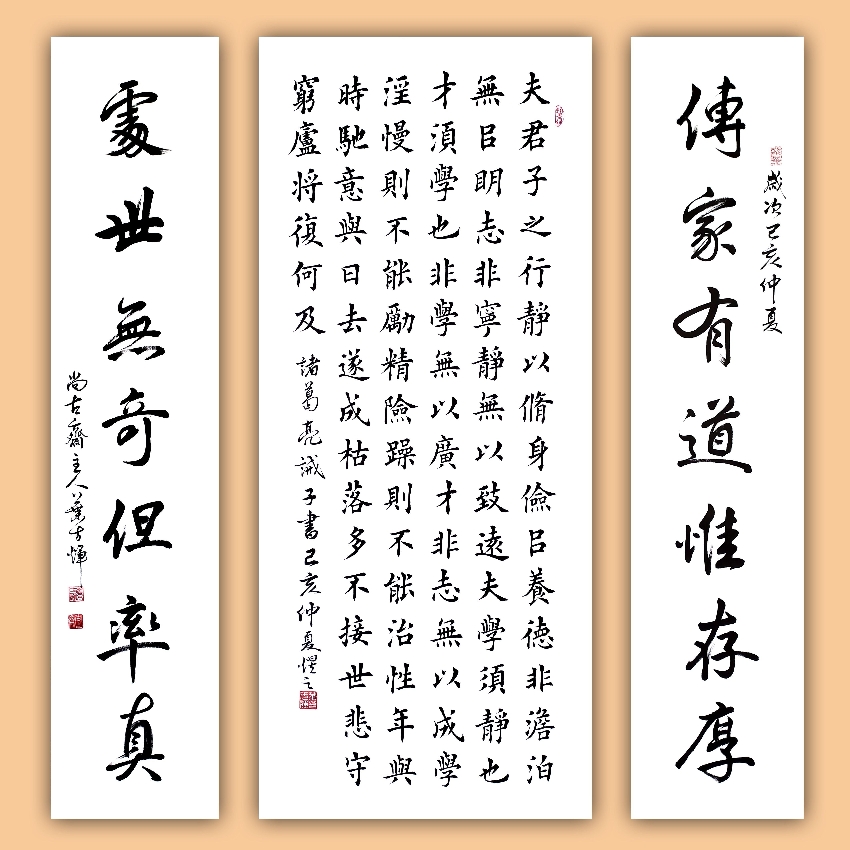 歲次己亥仲夏
傳家有道惟存厚
夫君子之行靜以脩身儉㠯養德非澹泊
無㠯眀志非寧靜無以致遠夫學須靜也
才須學也非學無以廣才非志無以成學
淫慢則不能勵精險躁則不能治性年與
時馳意與日去遂成枯落多不接世悲守
窮廬將復何及
諸葛亮誡子書己亥仲夏
處世無奇但率真
尚古齋主人